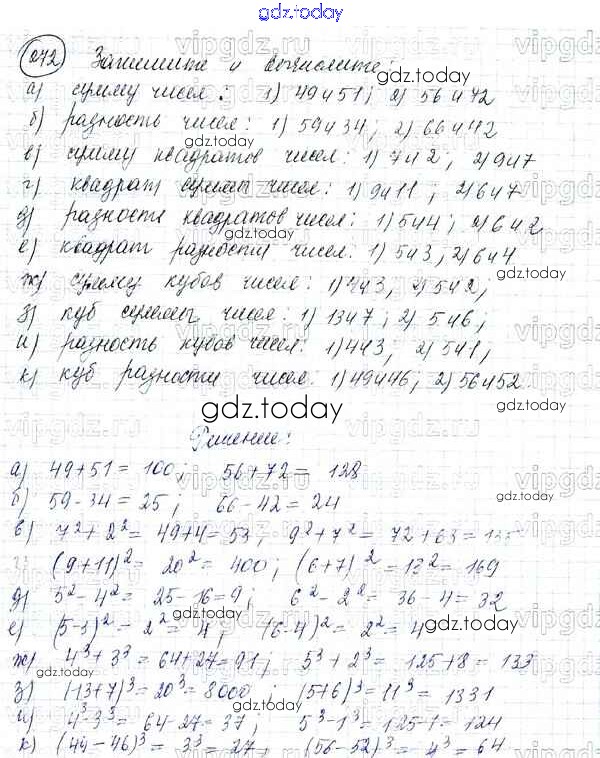 gdz.today
272 Запишите и вычислите:
а) сумму чисел: 1) 49 и 51; 2) 56 и 72
б) разность чисел: 1) 59 и 34; 2) 66 и 42
в) сумму квадратов чисел: 1) 7 и 2; 2) 9 и 7
г) квадрат суммы чисел: 1) 9 и 11; 2) 6 и 7
д) разности квадратов чисел: 1) 5 и 4; 2) 6 и 2
е) квадрат разности чисел: 1) 5 и 3, 2) 6 и 4
ж) сумму кубов чисел: 1) 4 и 3, 2) 5 и 2;
з) куб суммы чисел: 1) 13 и 7; 2) 5 и 6;
и) разность кубов чисел: 1) 4 и 3, 2) 5 и 1;
к) куб разности чисел: 1) 49 и 46; 2) 56 и 52.
gdz.today
Решение:
а) 49+51 = 100; 56+72 = 128
б) 59-34 = 25; 66-42 = 24
в) 7²+2² = 49+4 = 53; 9²+7² = 72+63 =
(9+11)² = 20² = 400; (6+7)² = 13² = 169
д) 5²-4² = 25-16 = 9; 6²-2² = 36-4 = 32
е) (5-3)² = 2² = 4; (6-4)² = 2² = 4
ж) 4³+3³ = 64+27 = 91; 5³+2³ = 125+8 = 133
з) (13+7)³ = 20³ = 8000; (5+6)³ = 11³ = 1331
и) 4³-3³ = 64-27 = 37; 5³-1³ = 125-1 = 124
к) (49-46)³ = 3³ = 27; (56-52)³ = 4³ = 64